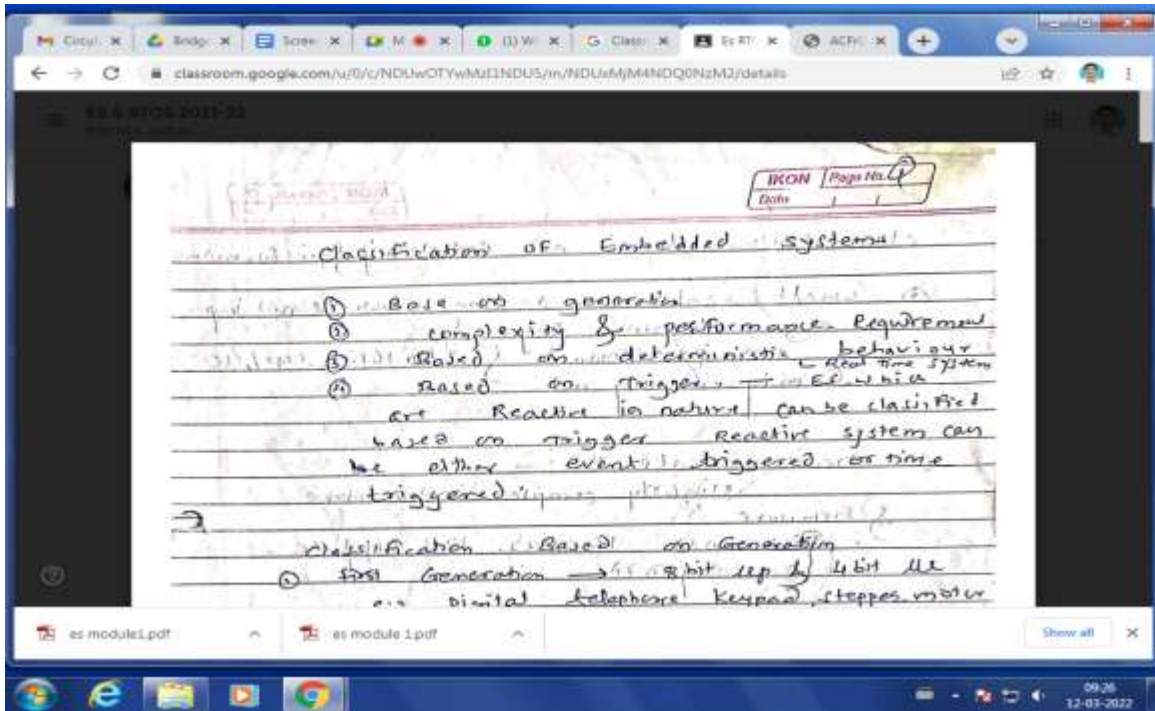 Circul
Bridg
Scree
M
(1) W
Class
Es RT
ACFr
classroom.google.com/u/0/c/NDUwOTYwMzI1NDU5/m/NDUxMjM4NDQ0NzM2/details
ES & RTOS 2021-22
IKON Page No. 1
Date
Classification OF Embedded systems
① Base on generation
② complexity & performance Requirement
③ Based on deterministic behaviour
↳ Real Time System
④ Based on Trigger → ES which
are Reactive in nature can be classified
based on Trigger Reactive system can
be either event triggered or time
triggered
→
classification Based on Generation
① first Generation → 8 bit up & 4 bit uc
e.g. Digital telephone Keypad, stepper motor
es module1.pdf
es module 1.pdf
Show all
09:26
12-03-2022